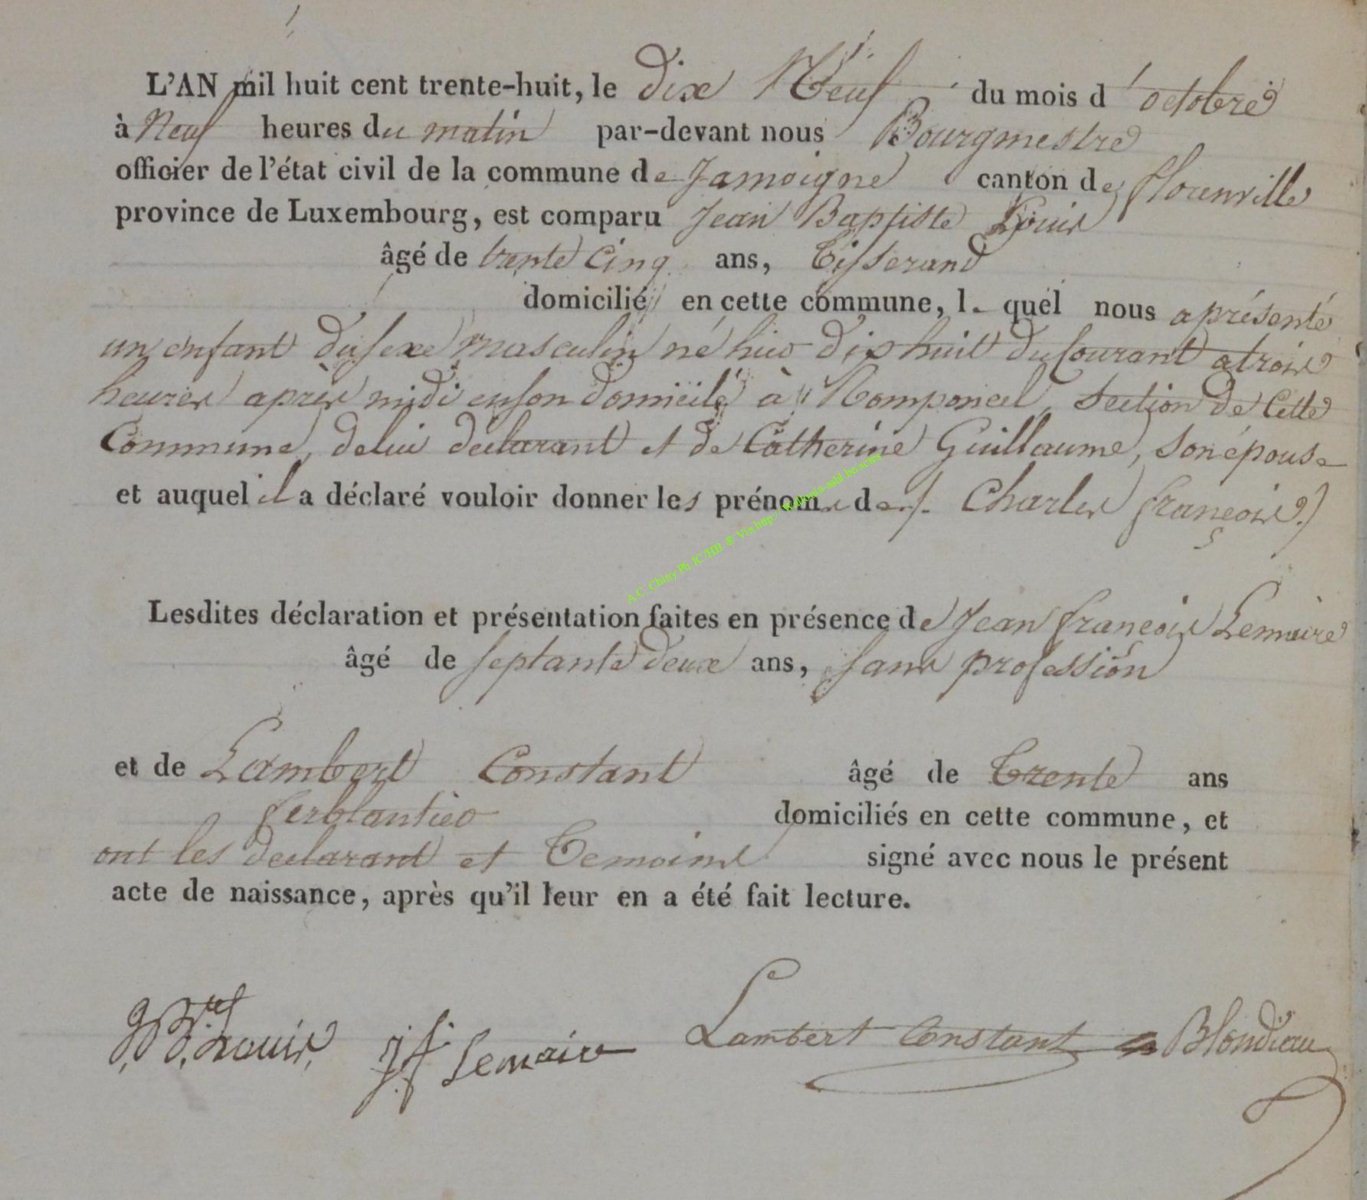 L'AN mil huit cent trente-huit, le dix Neuf du mois d'octobre
à Neuf heures du matin par-devant nous Bourgmestre
officier de l'état civil de la commune de Jamoigne canton de florenville
province de Luxembourg, est comparu Jean Baptiste Louis
âgé de trente cinq ans, Tisserand
domicilié en cette commune, l. quel nous a présenté
un enfant du sexe masculin né hier dix huit du Courant a trois
heures après midi en son domicile à Momponcel, Section de Cette
Commune, de lui déclarant et de Catherine Guillaume, son épouse
et auquel il a déclaré vouloir donner les prénoms de Charles françois
Lesdites déclaration et présentation faites en présence de Jean françois Lemaire
âgé de septante deux ans, sans profession
et de Lambert Constant âgé de Trente ans
ferblantier domiciliés en cette commune, et
ont les declarant et Temoins signé avec nous le présent
acte de naissance, après qu'il leur en a été fait lecture.
J. Bte Louis J f Lemaire Lambert Constant Blondieau